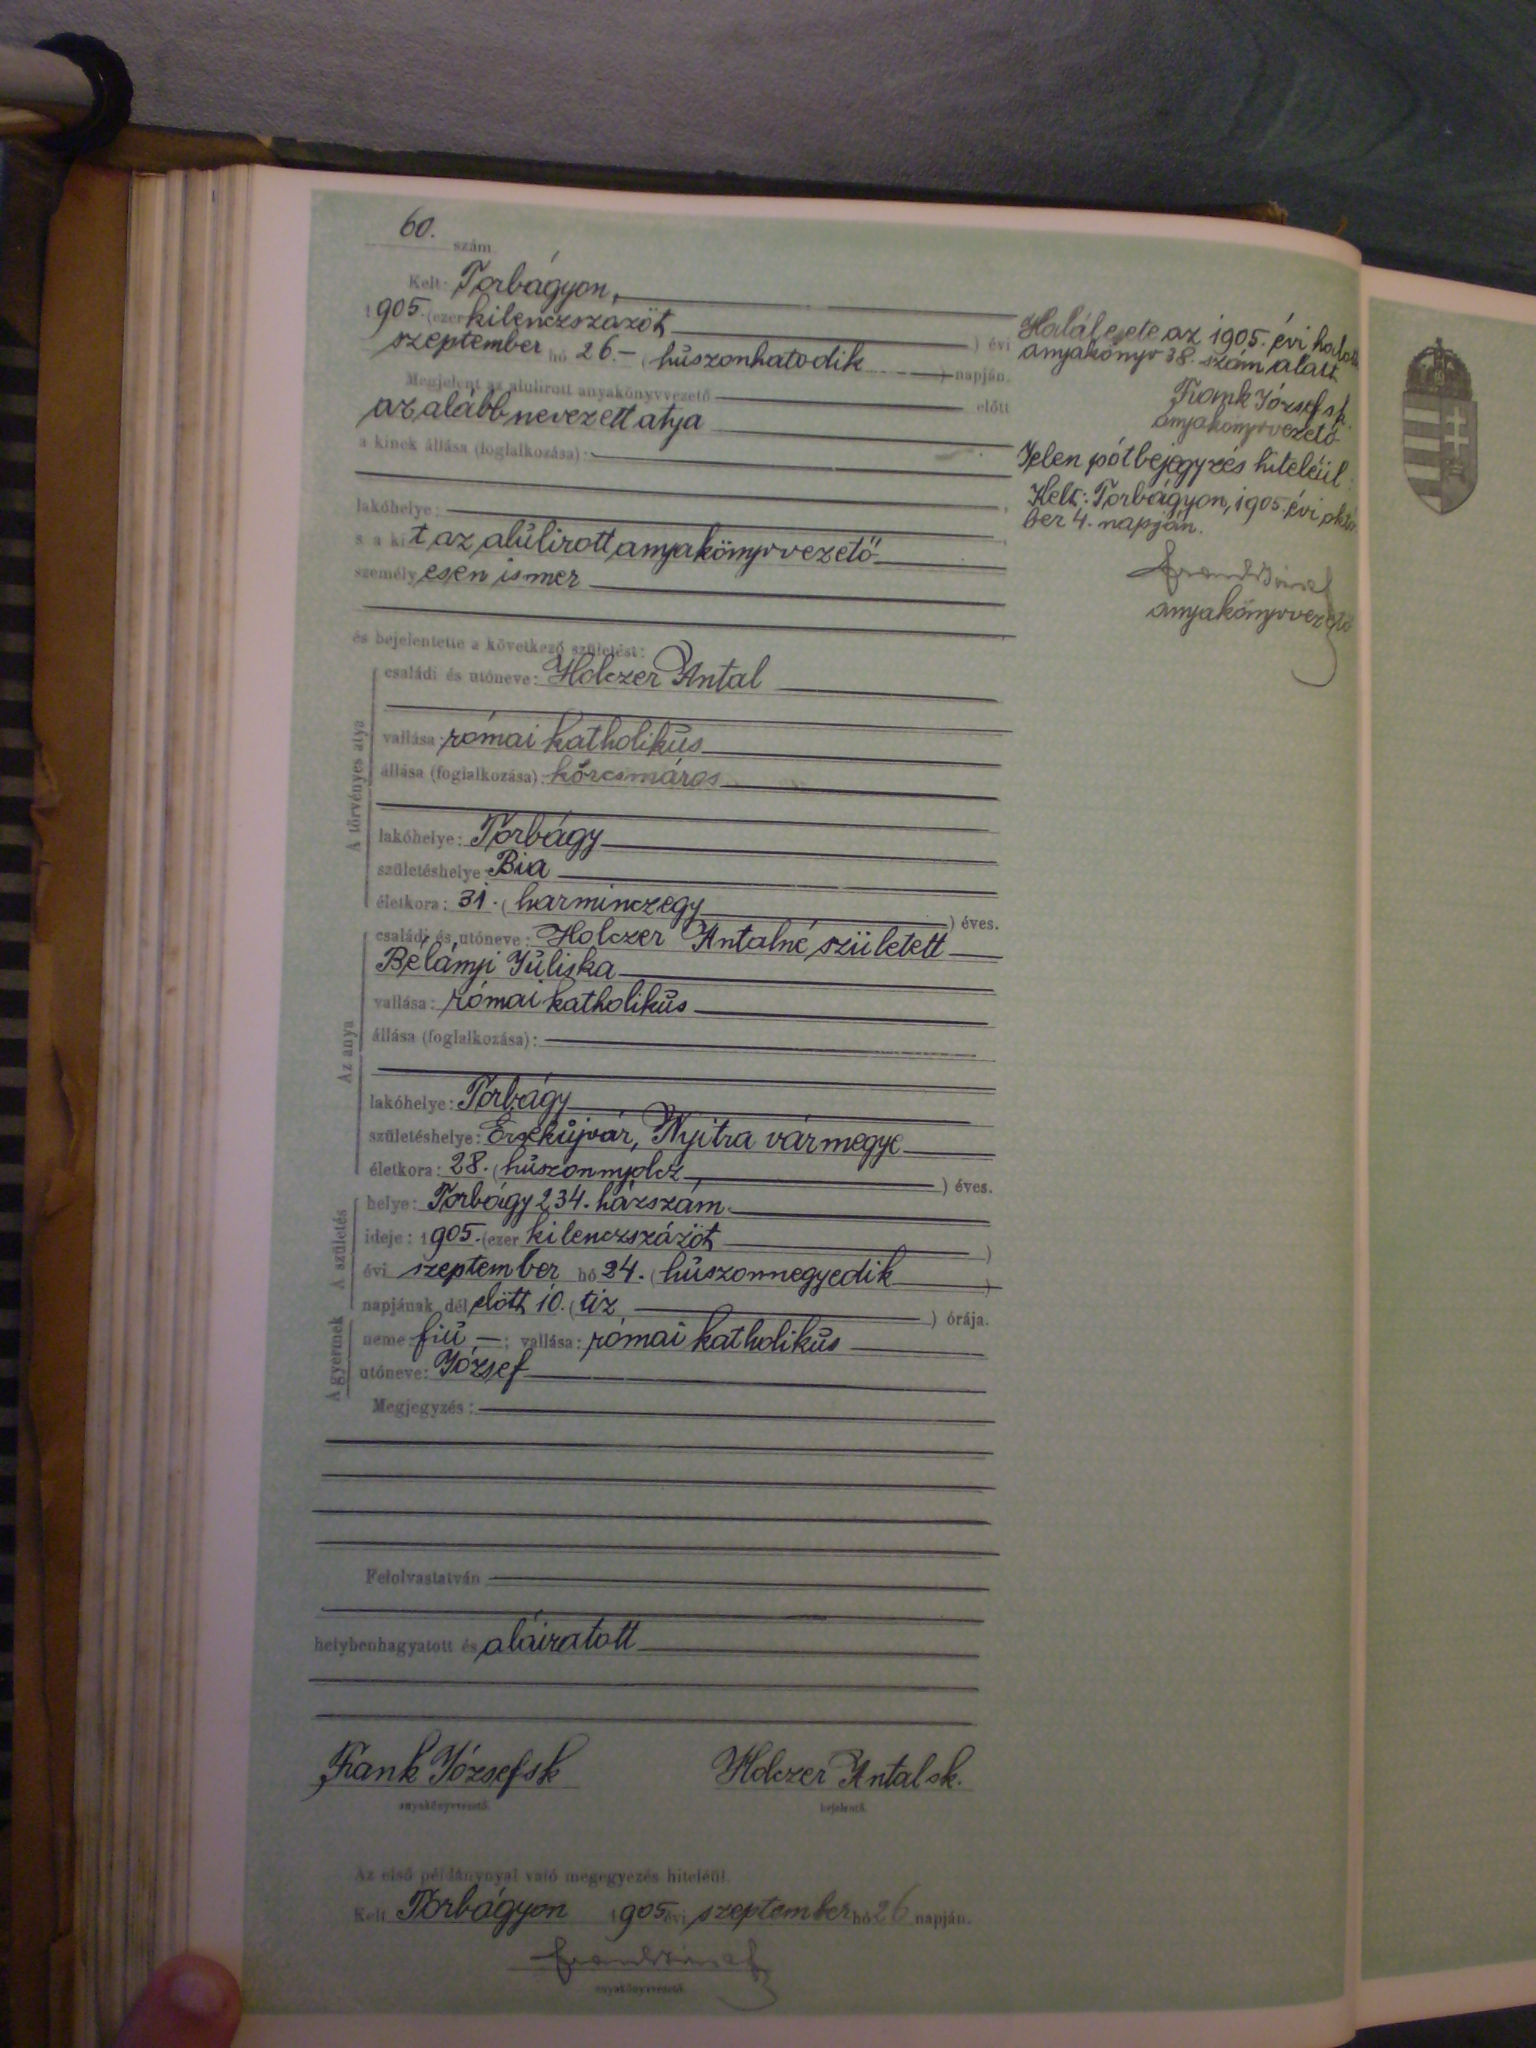 60. szám
Kelt: Torbágyon,
1905. (ezer kilenczszázöt ) évi
szeptember hó 26.- (húszonhatodik ) napján.
Megjelent az alulirott anyakönyvvezető előtt
az alább nevezett atya
a kinek állása (foglalkozása):
lakóhelye:
s a kit az alúlirott anyakönyvvezető
személyesen ismer
és bejelentette a következő születést:
A törvényes atya
családi és utóneve: Holczer Antal
vallása: római katholikús
állása (foglalkozása): kórcsmáros
lakóhelye: Torbágy
születéshelye: Bia
életkora: 31. (harminczegy ) éves.
Az anya
családi és utóneve: Holczer Antalné született
Bélányi Júliska
vallása: római katholikús
állása (foglalkozása):
lakóhelye: Torbágy
születéshelye: Érsekújvár, Nyitra vármegye
életkora: 28. (húszonnyolcz ) éves.
A születés
helye: Torbágy 234. házszám.
ideje: 1905. (ezer kilenczszázöt )
évi szeptember hó 24. (húszonnegyedik )
napjának dél előtt 10. (tiz ) órája.
A gyermek
neme: fiú -; vallása: római katholikús
utóneve: József
Megjegyzés:
Felolvastatván
helybenhagyatott és aláiratott
Frank József sk Holczer Antal sk.
anyakönyvvezető. bejelentő.
Az első példánynyal való megegyezés hiteléül.
Kelt Torbágyon 1905 évi szeptember hó 26 napján.
anyakönyvvezető.
Halálesete az 1905. évi halotti
anyakönyv 38. szám alatt.
Frank József sk.
anyakönyvvezető
Jelen pótbejegyzés hiteléül:
Kelt: Torbágyon, 1905. évi októ
ber 4. napján.
anyakönyvvezető